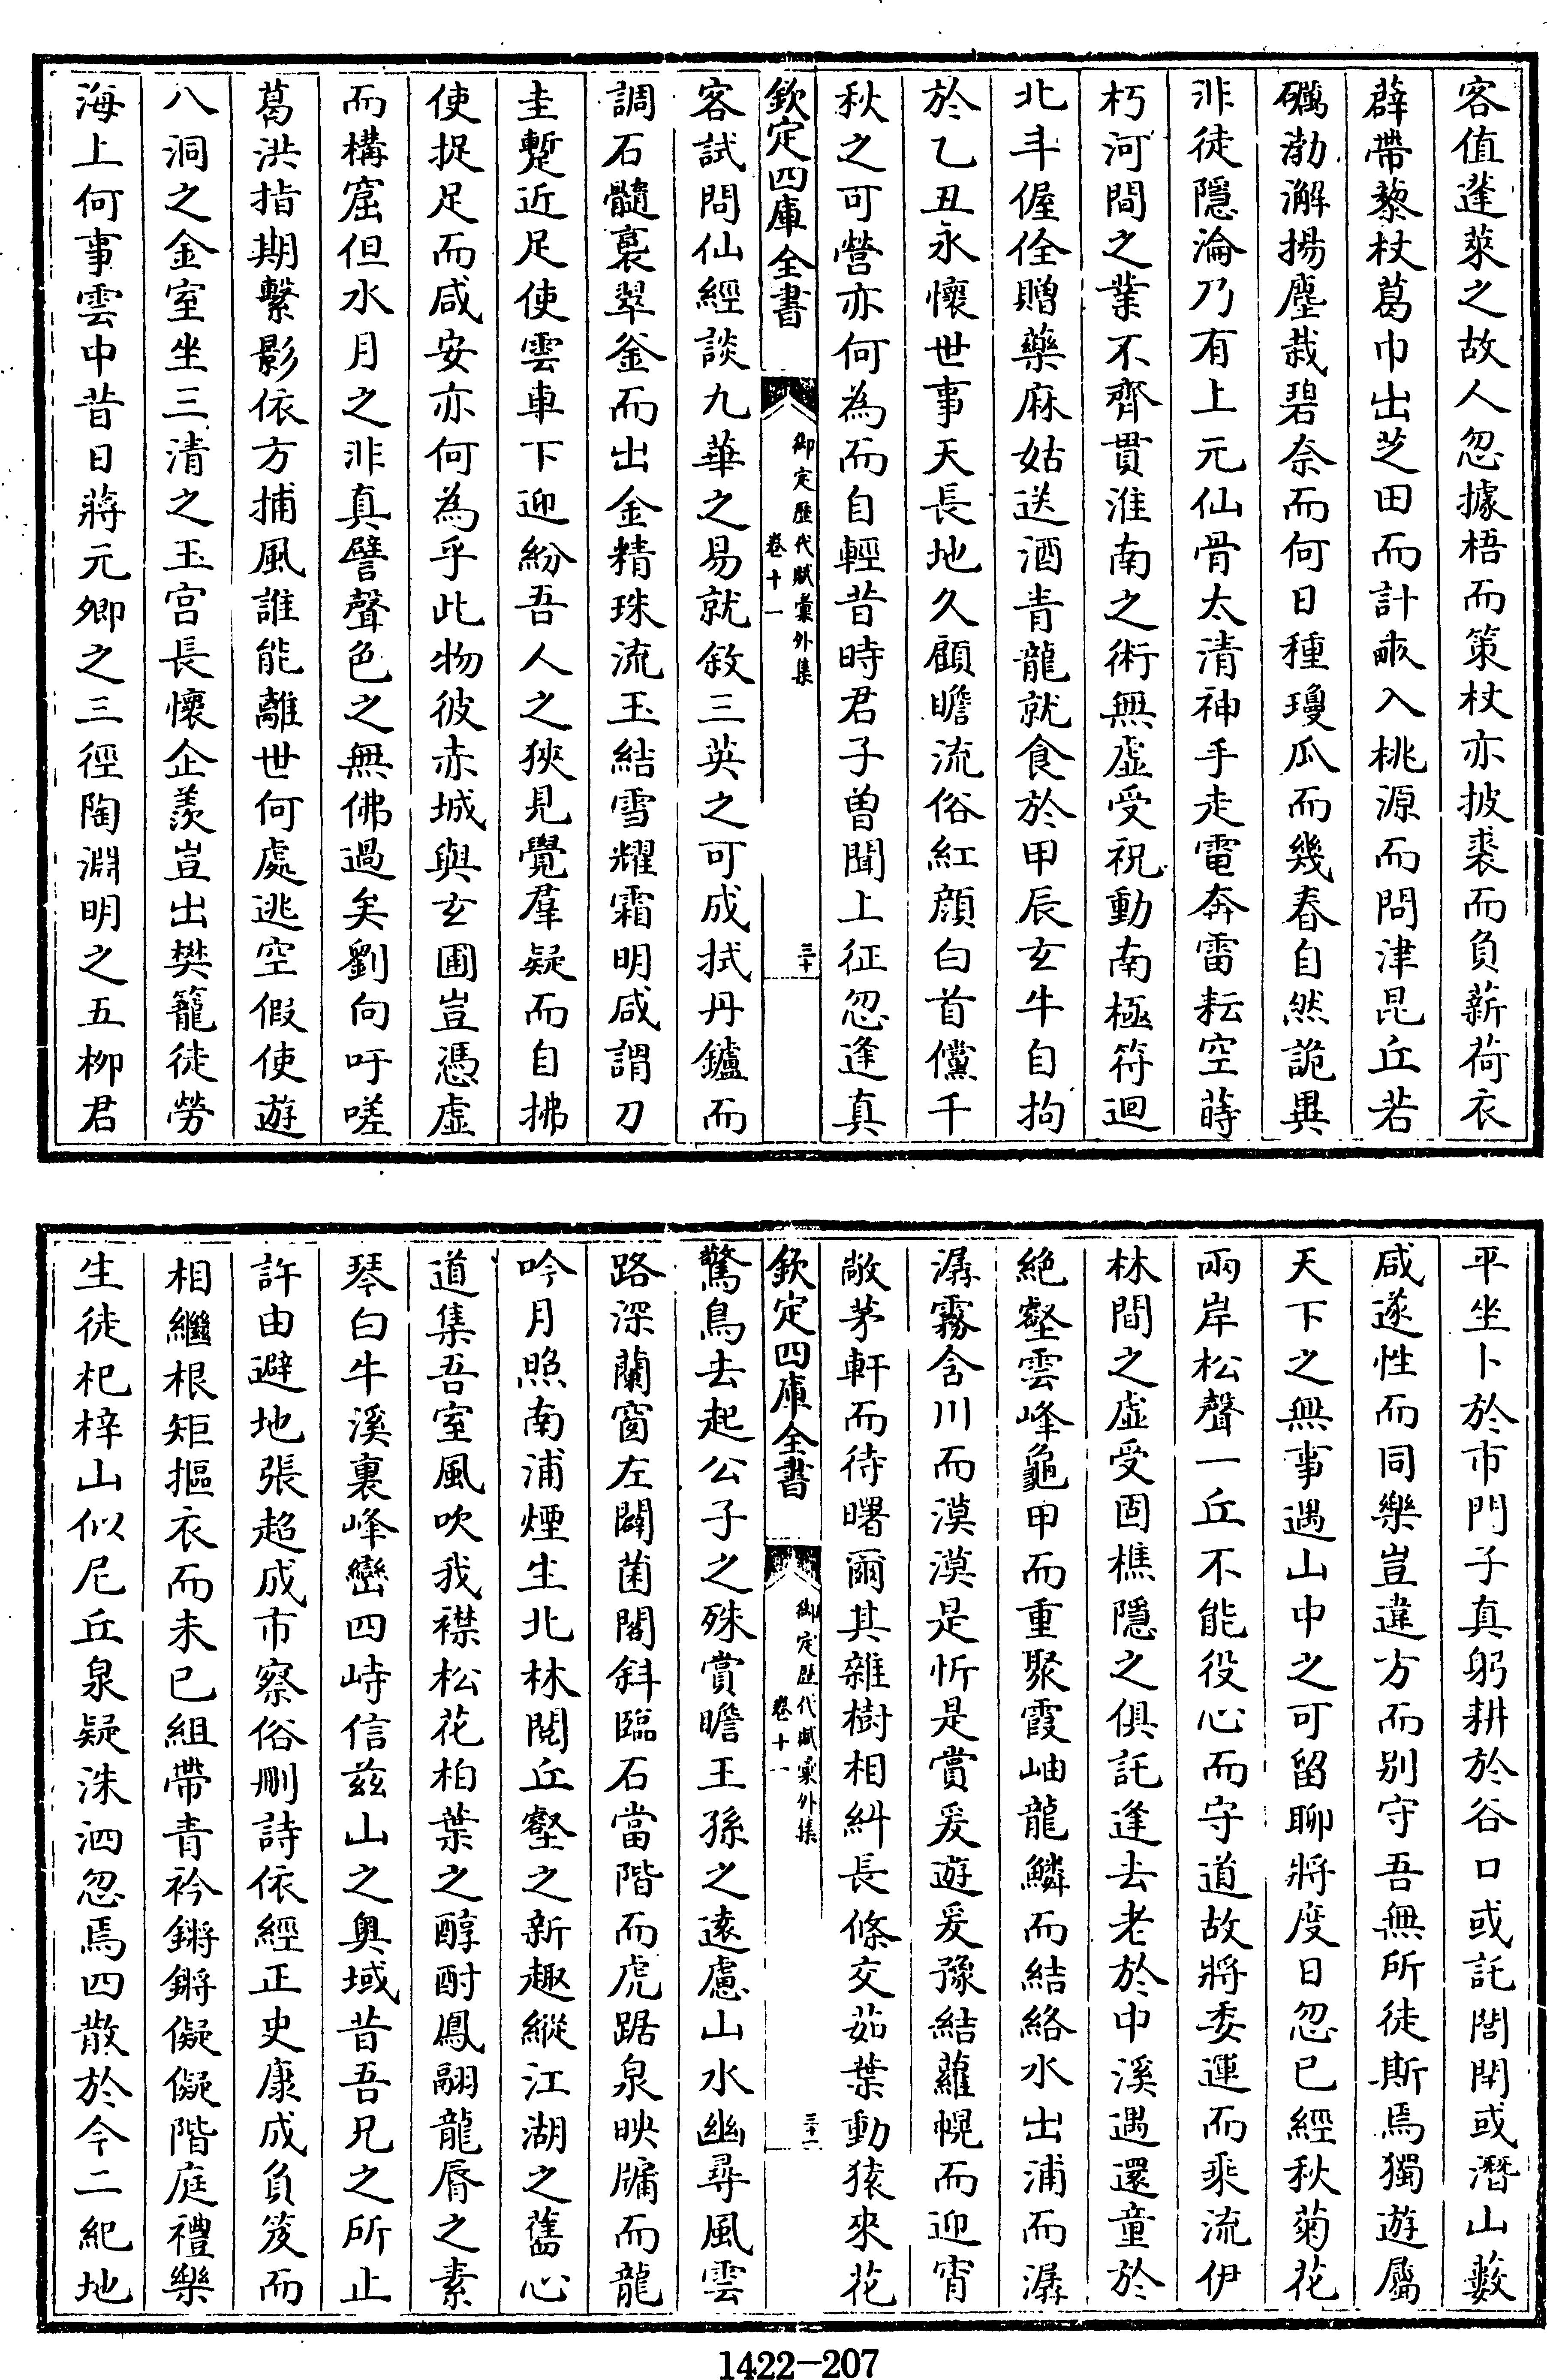 客值蓬萊之故人忽據梧而策杖亦披裘而負薪荷衣
薜帶藜杖葛巾出芝田而計畝入桃源而問津昆丘若
礪渤澥揚塵栽碧奈而何日種瓊瓜而幾春自然詭異
非徒隱淪乃有上元仙骨太清神手走電奔雷耘空蒔
朽河間之業不齊貫淮南之術無虛受祝動南極符迴
北斗偓佺贈藥麻姑送酒青龍就食於甲辰玄牛自拘
於乙丑永懷世事天長地久顧瞻流俗紅顏白首儻千
秋之可營亦何為而自輕昔時君子曾聞上征忽逢真
欽定四庫全書
御定歷代賦彙外集
卷十一
三十
客試問仙經談九華之易就敘三英之可成拭丹鑪而
調石髓裹翠釜而出金精珠流玉結雪耀霜明咸謂刀
圭蹔近足使雲車下迎紛吾人之狹見覺羣疑而自拂
使捉足而咸安亦何為乎此物彼赤城與玄圃豈憑虛
而構窟但水月之非真譬聲色之無佛過矣劉向吁嗟
葛洪指期繫影依方捕風誰能離世何處逃空假使遊
八洞之金室坐三清之玉宮長懷企羨豈出樊籠徒勞
海上何事雲中昔日蔣元卿之三徑陶淵明之五柳君
平坐卜於市門子真躬耕於谷口或託閭閈或潛山藪
咸遂性而同樂豈違方而別守吾無所徒斯焉獨遊屬
天下之無事遇山中之可留聊將度日忽已經秋菊花
兩岸松聲一丘不能役心而守道故將委運而乘流伊
林間之虛受固樵隱之俱託逢去老於中溪遇還童於
絕壑雲峰龜甲而重聚霞岫龍鱗而結絡水出浦而潺
潺霧含川而漠漠是忻是賞爰遊爰豫結蘿幌而迎宵
敞茅軒而待曙爾其雜樹相糾長條交茹葉動猿來花
欽定四庫全書
御定歷代賦彙外集
卷十一
三十一
驚鳥去起公子之殊賞瞻王孫之遠慮山水幽尋風雲
路深蘭窗左闢菌閣斜臨石當階而虎踞泉映牖而龍
吟月照南浦煙生北林閱丘壑之新趣縱江湖之舊心
道集吾室風吹我襟松花柏葉之醇酎鳳翮龍脣之素
琴白牛溪裏峰巒四峙信茲山之奧域昔吾兄之所止
許由避地張超成市察俗刪詩依經正史康成負笈而
相繼根矩摳衣而未已組帶青衿鏘鏘儗儗階庭禮樂
生徒杞梓山似尼丘泉疑洙泗忽焉四散於今二紀地
1422—207